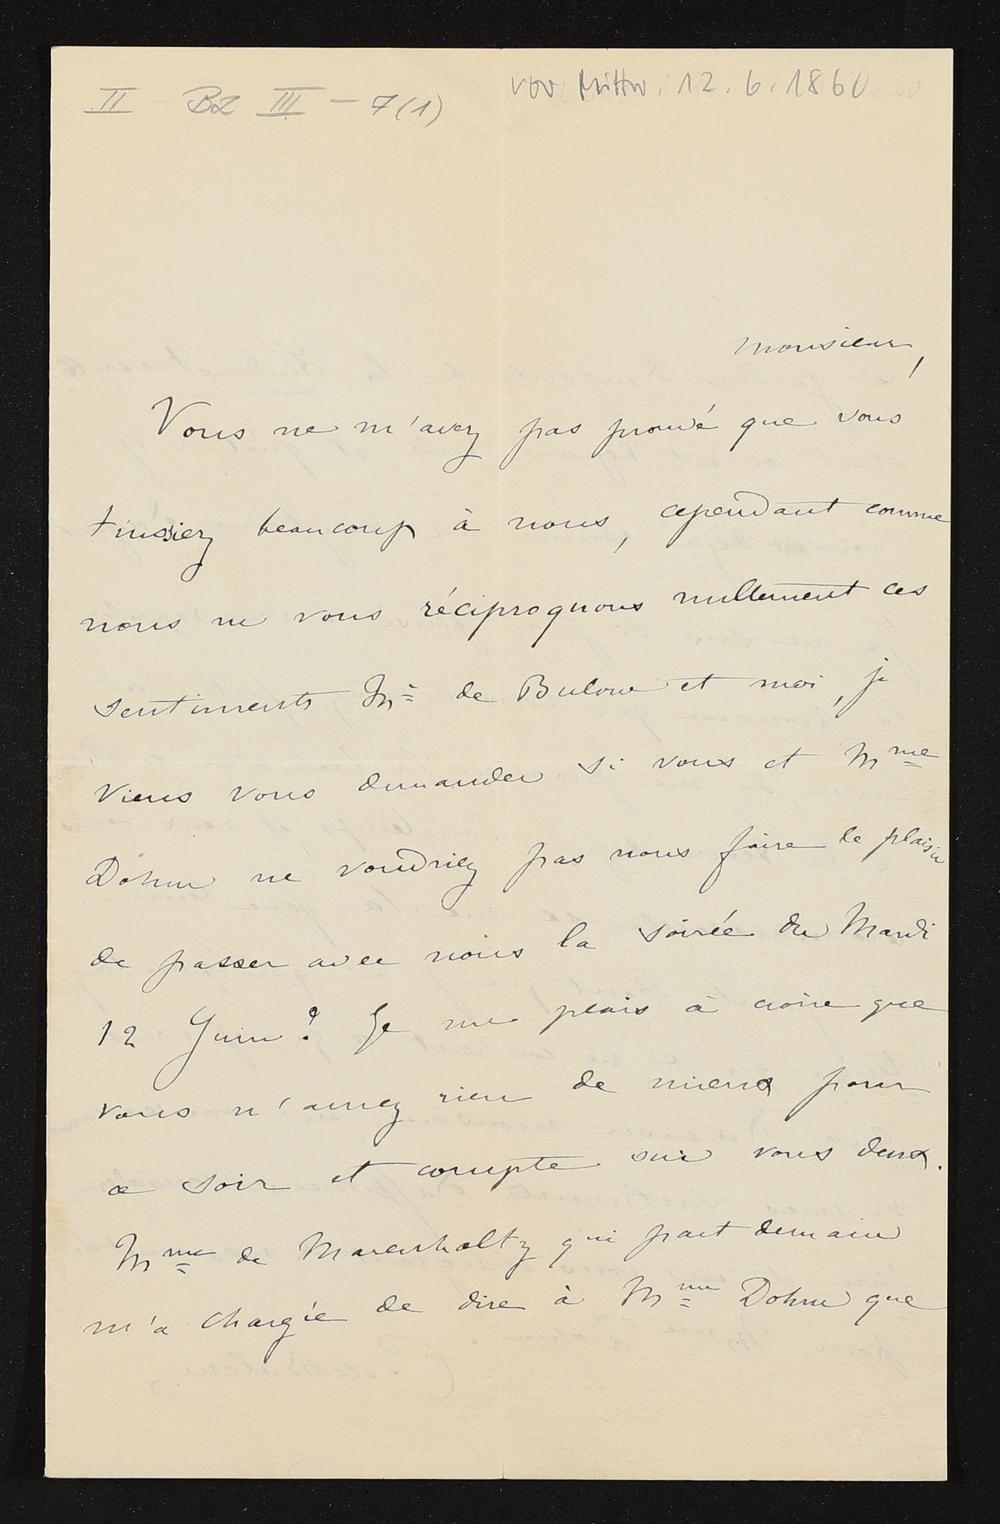 II BZ III - 7(1)
vor Mittw. 12.6.1860
Monsieur,
Vous ne m'avez pas prouvé que vous
tinssiez beaucoup à nous, cependant comme
nous ne vous réciproquons nullement ces
sentiments Mr de Bulow et moi, je
viens vous demander si vous et Mme
Dohm ne voudriez pas nous faire le plaisir
de passer avec nous la soirée du Mardi
12 Juin? Je me plais à croire que
vous n'aurez rien de mieux pour
ce soir et compte sur vous deux.
Mme de Marenholtz qui part demain
m'a chargée de dire à Mme Dohm que